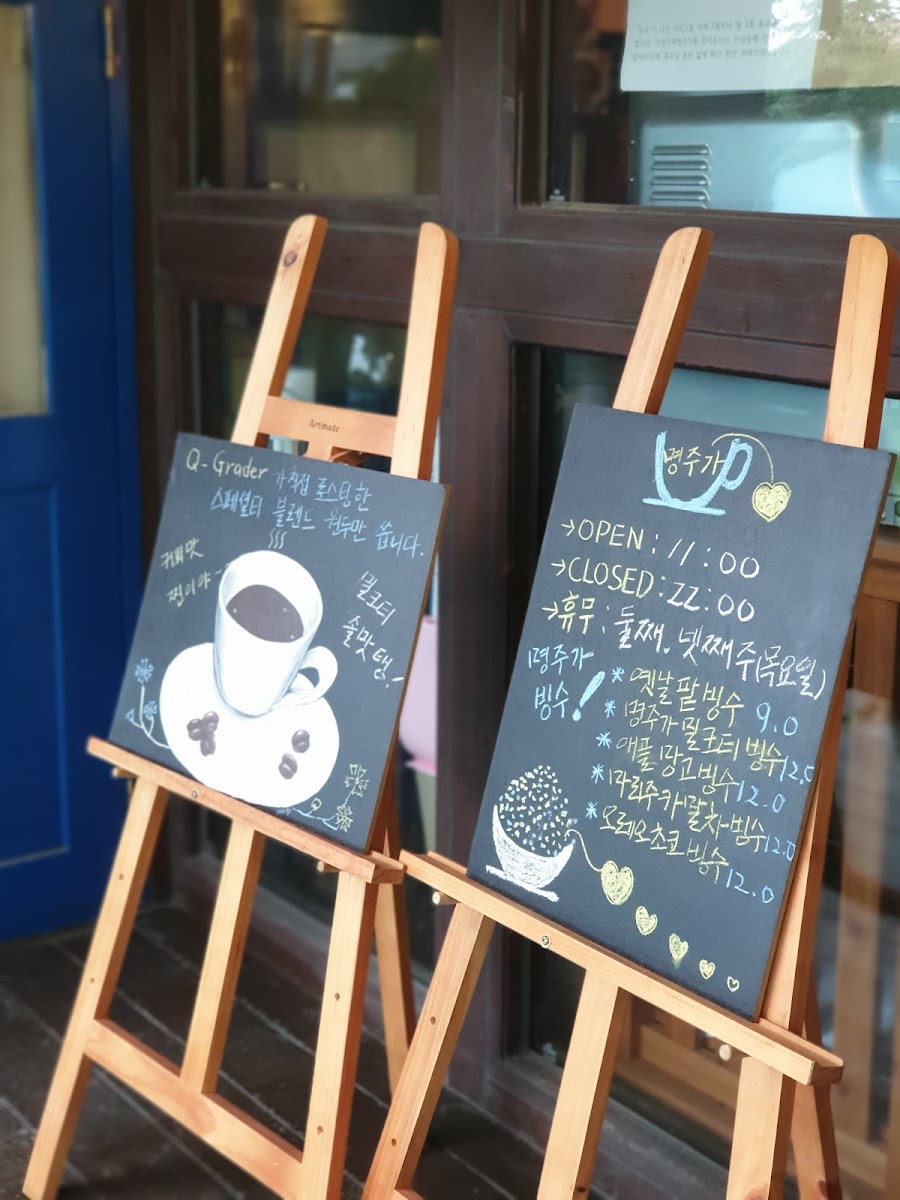 Artmate
Q-Grader 가 직접 로스팅한
스페셜티 블렌드 원두만 씁니다.
커피맛
찐이야~
밀크티
솔맛탱!
명주가
→OPEN : 11 : 00
→CLOSED : 22 : 00
→휴무 : 둘째, 넷째주(목요일)
명주가
빙수!
* 옛날팥빙수 9.0
* 명주가 밀크티 빙수 12.0
* 애플망고빙수 12.0
* 마리주카말차빙수 12.0
* 오레오초코빙수 12.0